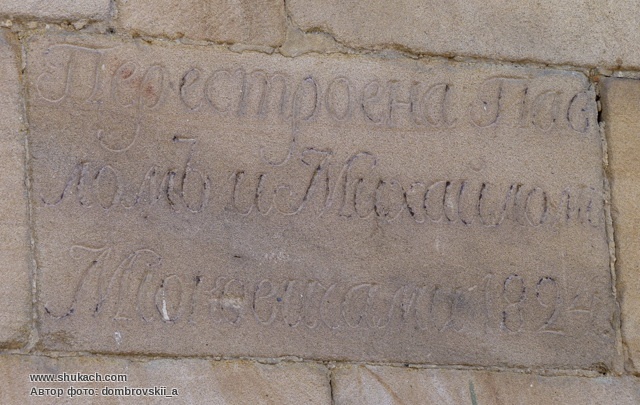 Перестроена Пав
ломъ и Михайлом
1824
www.shukach.com
Автор фото: dombrovskii_a